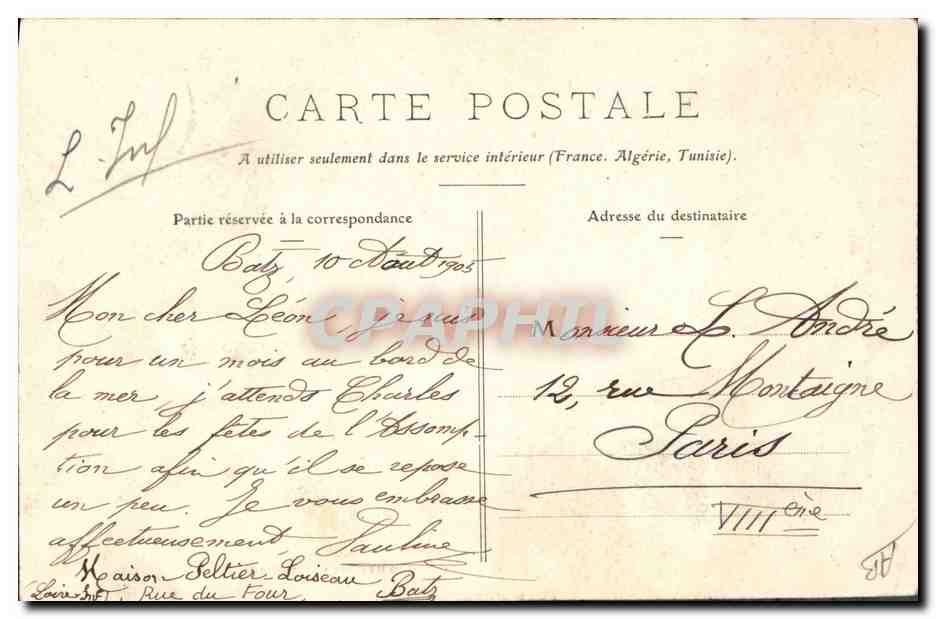 CARTE POSTALE
L. Inf
A utiliser seulement dans le service intérieur (France. Algérie, Tunisie).
Partie réservée à la correspondance
Batz, 10 Août 1905
Mon cher Léon, je suis
pour un mois au bord de
la mer, j'attends Charles
pour les fêtes de l'Assomp-
tion afin qu'il se repose
un peu. Je vous embrasse
affectueusement, Pauline
Maison Peltier-Loiseau
Rue du Four, Batz
(Loire-Inf.
Adresse du destinataire
Monsieur L. André
12, rue Montaigne
Paris
VIIIème
CPAPHIL
AB